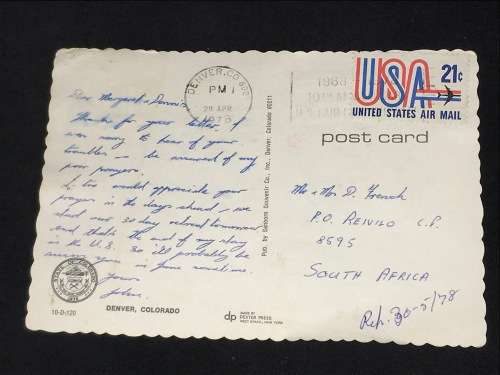 DENVER, CO 802
PM
29 APR
1978
USA 21c
UNITED STATES AIR MAIL
post card
Dear Margaret & Dennis
Thanks for your letter. I
was sorry to hear of your
troubles - be assured of my
poor prayers.
I, too would appreciate your
prayers in the days ahead - we
start our 30 day retreat tomorrow
and that's the end of my stay
in the U.S. So I'll probably be
seeing you in
Yours
John
Pub. by Sanborn Souvenir Co., Inc., Denver, Colorado 80211
Mr & Mrs D. French
P.O. REIVILO C.P.
8595
SOUTH AFRICA
Rep. 30-5/78
10-D-120
DENVER, COLORADO
dp
MADE BY
DEXTER PRESS
WEST NYACK, NEW YORK